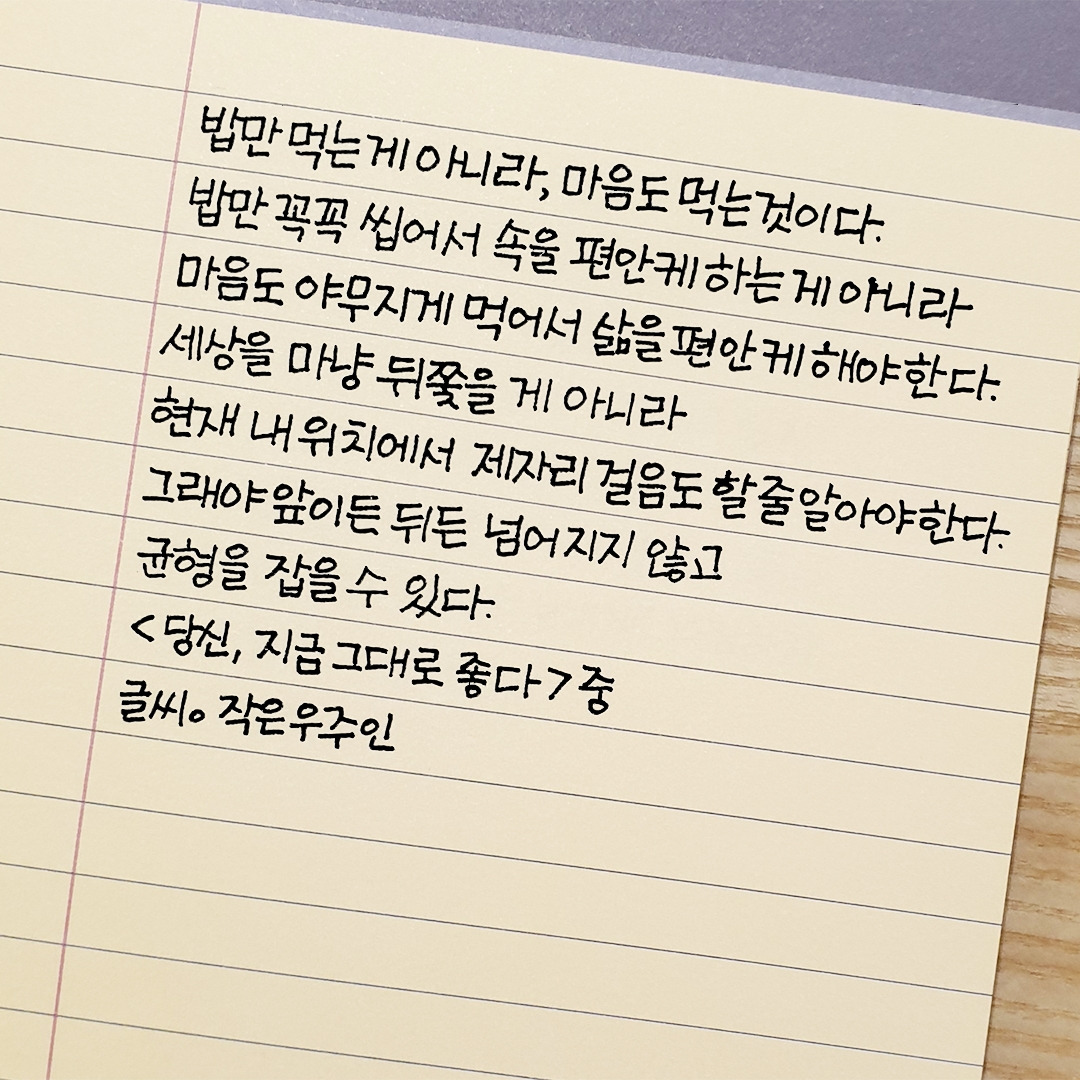 밥만 먹는 게 아니라, 마음도 먹는 것이다.
밥만 꼭꼭 씹어서 속을 편안케 하는 게 아니라
마음도 야무지게 먹어서 삶을 편안케 해야 한다.
세상을 마냥 뒤쫓을 게 아니라
현재 내 위치에서 제자리 걸음도 할 줄 알아야 한다.
그래야 앞이든 뒤든 넘어지지 않고
균형을 잡을 수 있다.
<당신, 지금 그대로 좋다> 중
글씨。 작은우주인